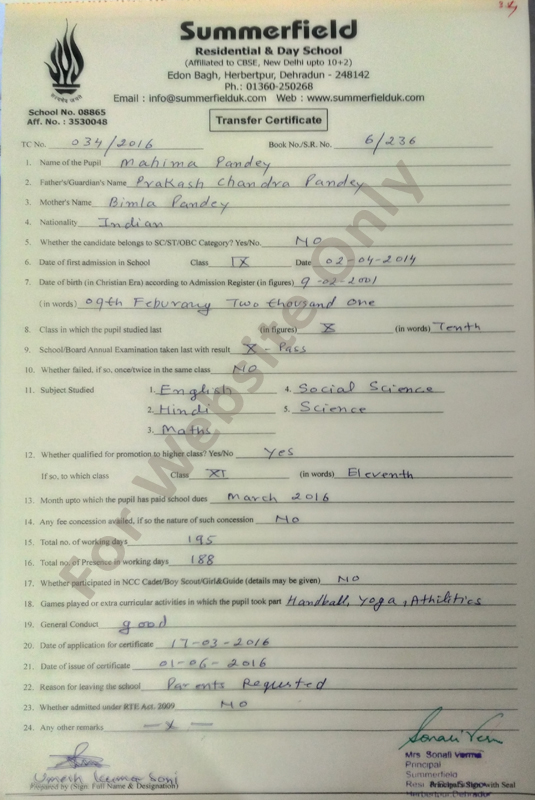 Summerfield
Residential & Day School
(Affiliated to CBSE, New Delhi upto 10+2)
Edon Bagh, Herbertpur, Dehradun - 248142
Ph.: 01360-250268
Email : info@summerfielduk.com Web : www.summerfielduk.com
School No. 08865
Aff. No. : 3530048
Transfer Certificate
TC No. 034/2016 Book No./S.R. No. 6/236
1. Name of the Pupil Mahima Pandey
2. Father's/Guardian's Name Prakash Chandra Pandey
3. Mother's Name Bimla Pandey
4. Nationality Indian
5. Whether the candidate belongs to SC/ST/OBC Category? Yes/No. NO
6. Date of first admission in School Class IX Date 02-04-2014
7. Date of birth (in Christian Era) according to Admission Register (in figures) 9-02-2001
(in words) 09th Feburary Two thousand one
8. Class in which the pupil studied last (in figures) X (in words) Tenth
9. School/Board Annual Examination taken last with result X - Pass
10. Whether failed, if so, once/twice in the same class NO
11. Subject Studied 1. English 4. Social Science
2. Hindi 5. Science
3. Maths
12. Whether qualified for promotion to higher class? Yes/No Yes
If so, to which class Class XI (in words) Eleventh
13. Month upto which the pupil has paid school dues March 2016
14. Any fee concession availed, if so the nature of such concession NO
15. Total no. of working days 195
16. Total no. of Presence in working days 188
17. Whether participated in NCC Cadet/Boy Scout/Girl&Guide (details may be given) NO
18. Games played or extra curricular activities in which the pupil took part Handball, Yoga, Athilitics
19. General Conduct good
20. Date of application for certificate 17-03-2016
21. Date of issue of certificate 01-06-2016
22. Reason for leaving the school Parents Requested
23. Whether admitted under RTE Act. 2009 NO
24. Any other remarks —x—
For Website Only
Sonali Verm
Mrs Sonali Verma
Principal
Summerfield
Umesh Kumar Soni
Prepared by (Sign. Full Name & Designation) with Seal
Herbertpur, Dehradun